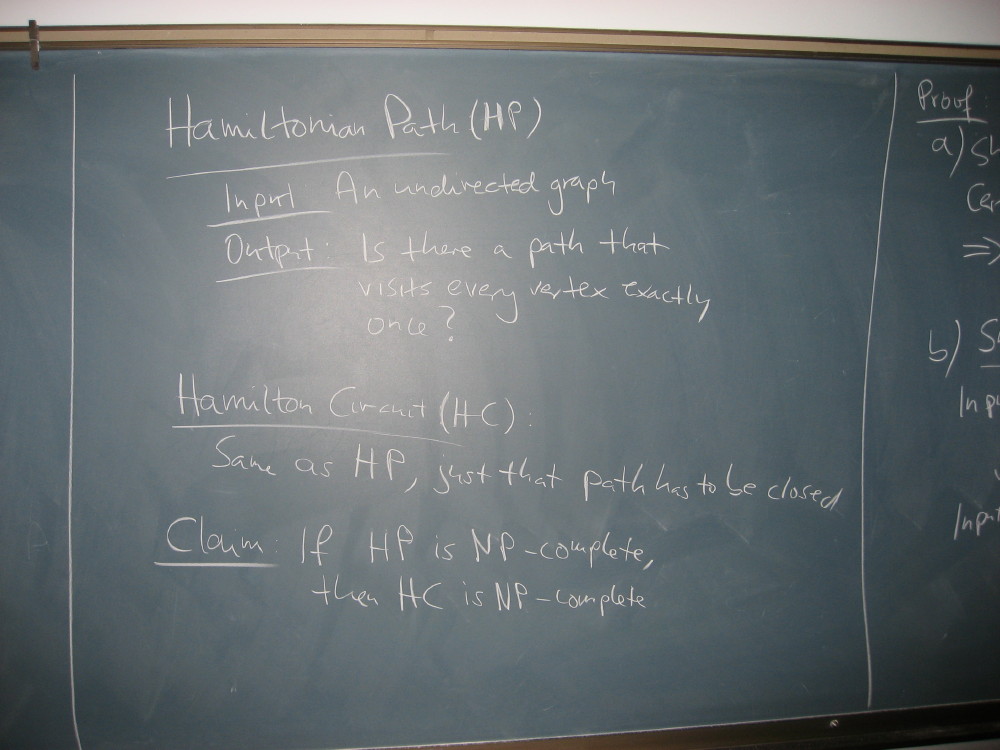 Hamiltonian Path (HP)
Input An undirected graph
Output: Is there a path that
visits every vertex exactly
once?
Hamilton Circuit (HC):
Same as HP, just that path has to be closed
Claim: If HP is NP-complete,
then HC is NP-complete
Proof:
a)
=>
b)